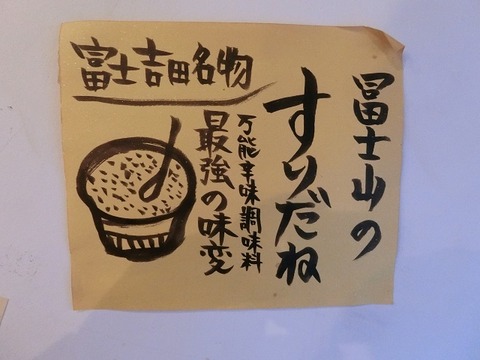 富士吉田名物
冨士山の
すりだね
万能辛味調味料
最強の味変